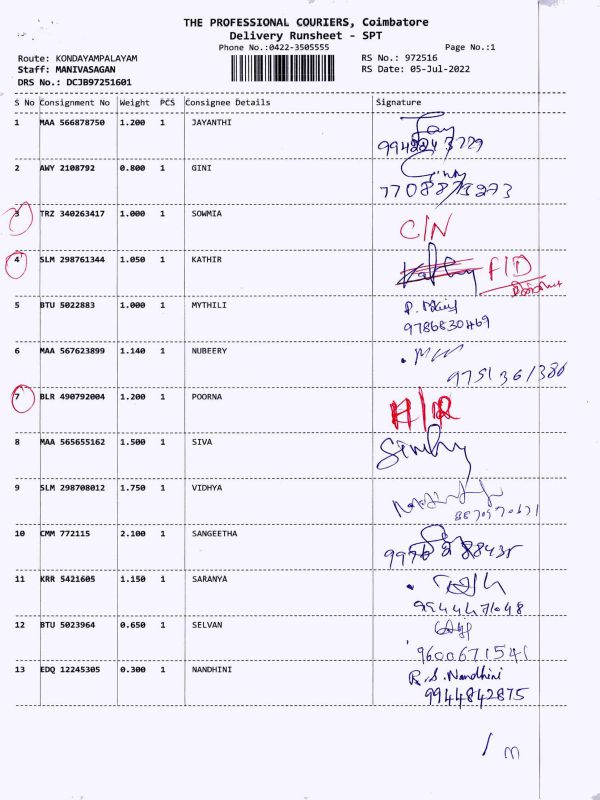 THE PROFESSIONAL COURIERS, Coimbatore
Delivery Runsheet - SPT
Phone No.:0422-3505555 Page No.:1
Route: KONDAYAMPALAYAM RS No.: 972516
Staff: MANIVASAGAN RS Date: 05-Jul-2022
DRS No.: DCJB97251601
S No Consignment No Weight PCS Consignee Details Signature
1 MAA 566878750 1.200 1 JAYANTHI
2 AWY 2108792 0.800 1 GINI
3 TRZ 340263417 1.000 1 SOWMIA C/N
4 SLM 298761344 1.050 1 KATHIR F/D
5 BTU 5022883 1.000 1 MYTHILI
9786830469
6 MAA 567623899 1.140 1 NUBEERY
9751361380
7 BLR 490792004 1.200 1 POORNA
8 MAA 565655162 1.500 1 SIVA
9 SLM 298708012 1.750 1 VIDHYA
10 CMM 772115 2.100 1 SANGEETHA
11 KRR 5421605 1.150 1 SARANYA
12 BTU 5023964 0.650 1 SELVAN
9600671541
13 EDQ 12245305 0.300 1 NANDHINI R.S.Nandhini
9944842875